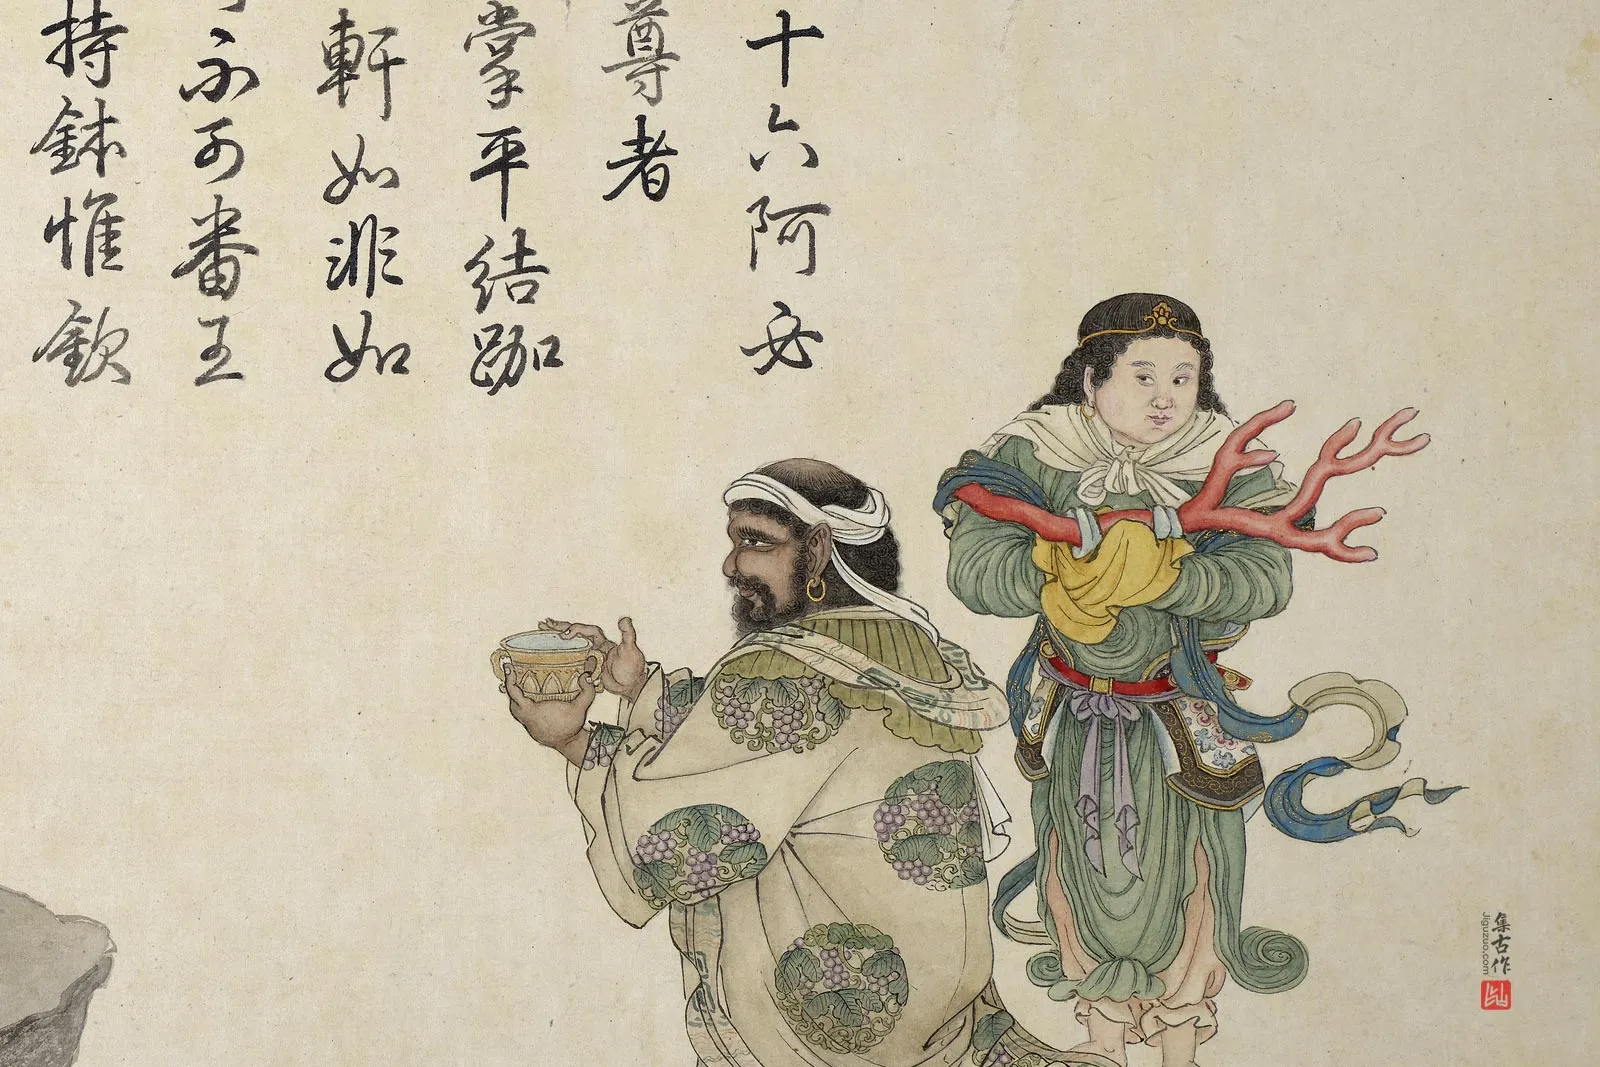 十六阿必
尊者
掌平結跏
軒如非如
可番王
持鉢惟欽
集古作
Jiguzuo.com